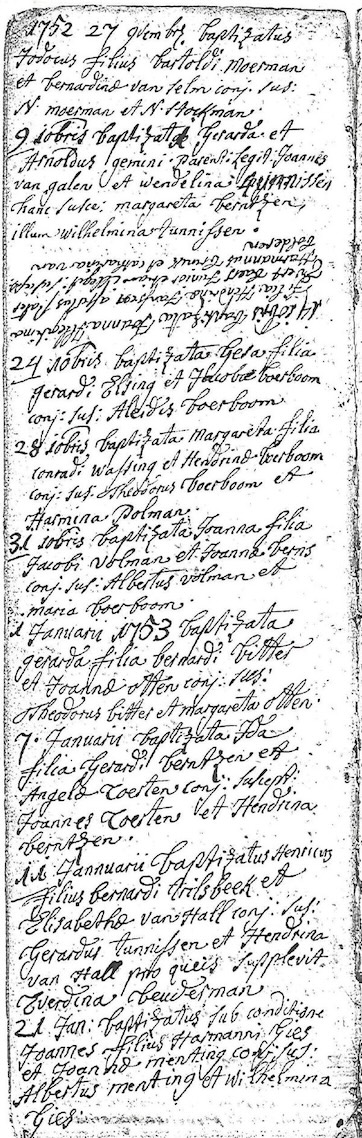 1752 27 9vembris baptizatus
Jodocus filius bartoldi moerman
et bernardinæ van helm conj: sus:
N. moerman et N. Stockman.
9 10bris baptizata Gerarda et
Arnoldus gemini. parent: legit: Joannes
van galen et wendelina
hanc susce: margareta berntzen,
illum wilhelmina tunnissen.
14 10bris baptizata Joanna
filia
Evert
Hermannus et Catharina van
24 10bris baptizata Gesa filia
gerardi Elsing et Jacobæ boerboom
conj: sus: Aleidis boerboom
28 10bris baptizata margareta filia
conradi wassing et Hendrinæ boerboom
conj: sus: Theodorus boerboom et
Harmina Polman.
31 10bris baptizata Joanna filia
Jacobi volman et Joannæ berns
conj: sus: Albertus volman et
maria boerboom
1 Januarii 1753 baptizata
gerarda filia bernardi bitter
et Joannæ otten conj: sus:
Theodorus bitter et margareta otten.
7. Januarii baptizata Ida
filia Gerardi berntzen et
Angelæ Toerten conj: suscept:
Joannes Toerten et Hendrina
berntzen.
11 Jannuarii baptizatus Henricus
filius bernardi trilsbeek et
Elisabethæ van Hall conj: sus:
Gerardus tunnissen et Hendrina
van Hall pro queis supplevit
Everdina beuderman
21 Jan: baptizatus sub conditione
Joannes filius Harmanni Gies
et Joannæ menting conj: sus:
Albertus menting et wilhelmina
Gies.